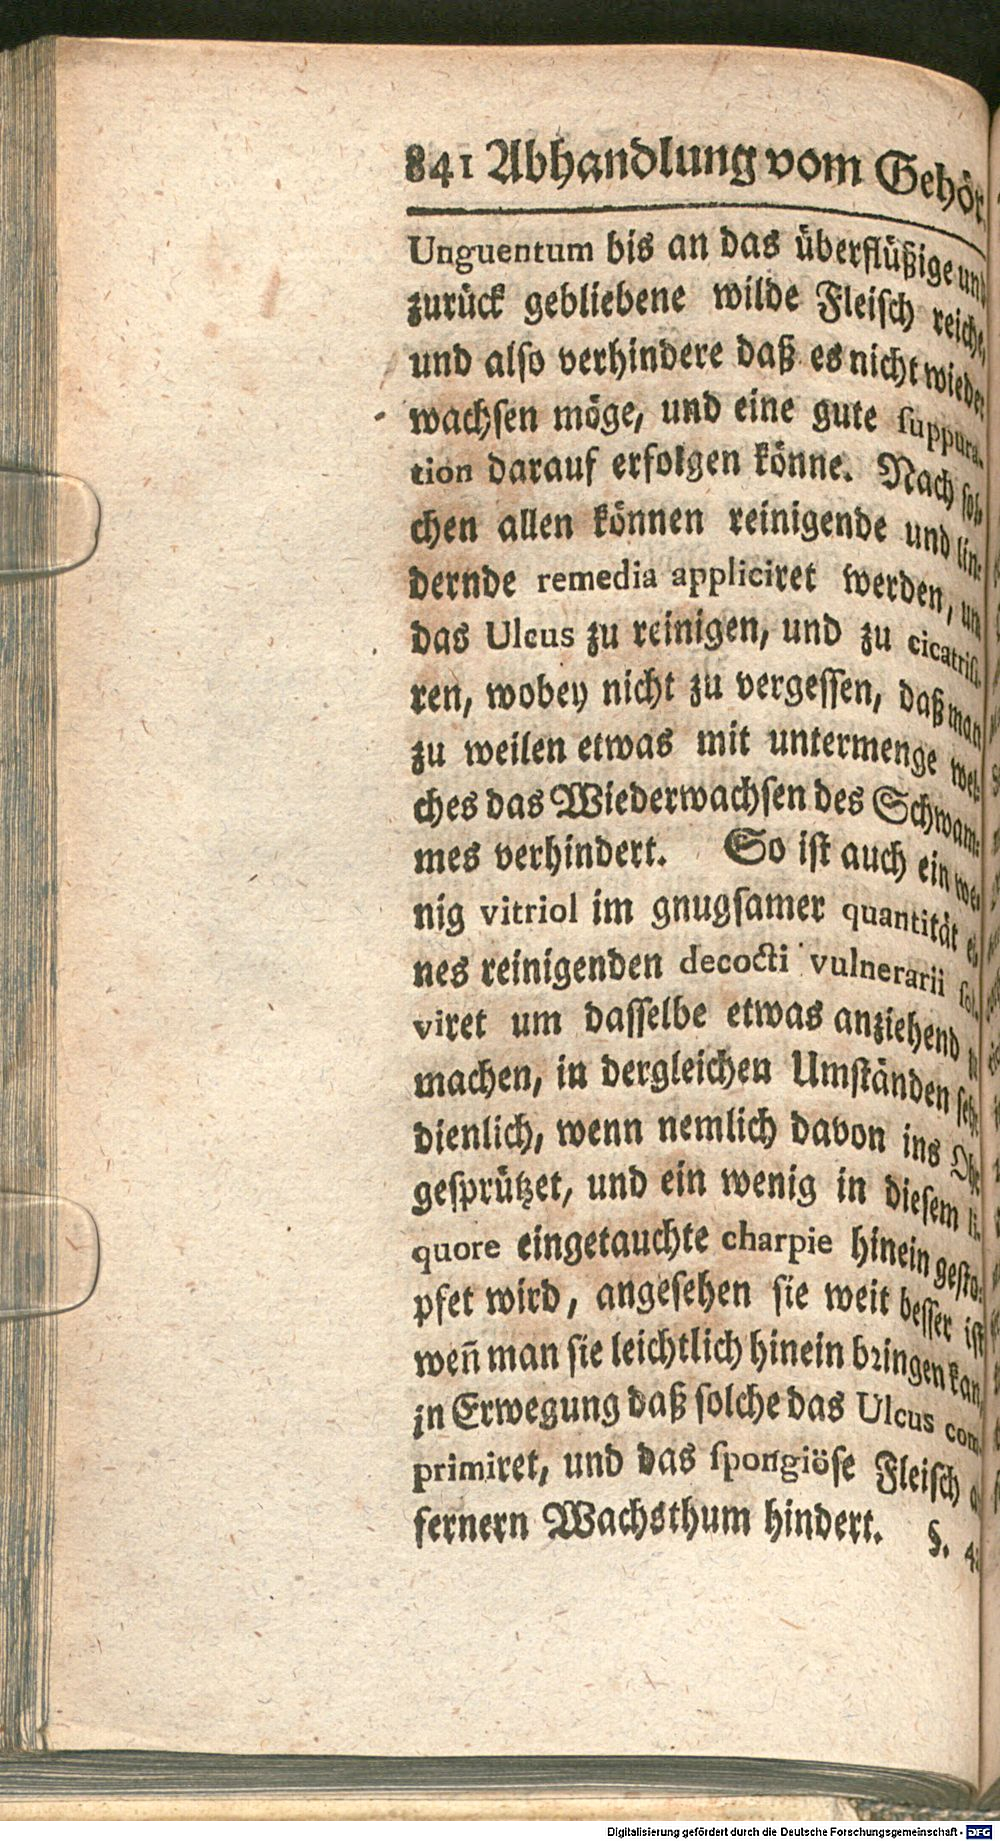 841 Abhandlung vom Gehör
Unguentum bis an das überflüßige und
zurück gebliebene wilde Fleisch reiche,
und also verhindere daß es nicht wieder
wachsen möge, und eine gute suppura-
tion darauf erfolgen könne. Nach sol-
chen allen können reinigende und lin-
dernde remedia appliciret werden, um
das Ulcus zu reinigen, und zu cicatrisi-
ren, wobey nicht zu vergessen, daß man
zu weilen etwas mit untermenge wel-
ches das Wiederwachsen des Schwam-
mes verhindert. So ist auch ein we-
nig vitriol im gnugsamer quantität ei-
nes reinigenden decocti vulnerarii sol-
viret um dasselbe etwas anziehend
machen, in dergleichen Umständen sehr
dienlich, wenn nemlich davon ins Ohr
gesprützet, und ein wenig in diesem li-
quore eingetauchte charpie hinein gesto-
pfet wird, angesehen sie weit besser ist
weñ man sie leichtlich hinein bringen kan,
in Erwegung daß solche das Ulcus com-
primiret, und das spongiöse Fleisch
fernern Wachsthum hindert. §. 4
Digitalisierung gefördert durch die Deutsche Forschungsgemeinschaft - DFG